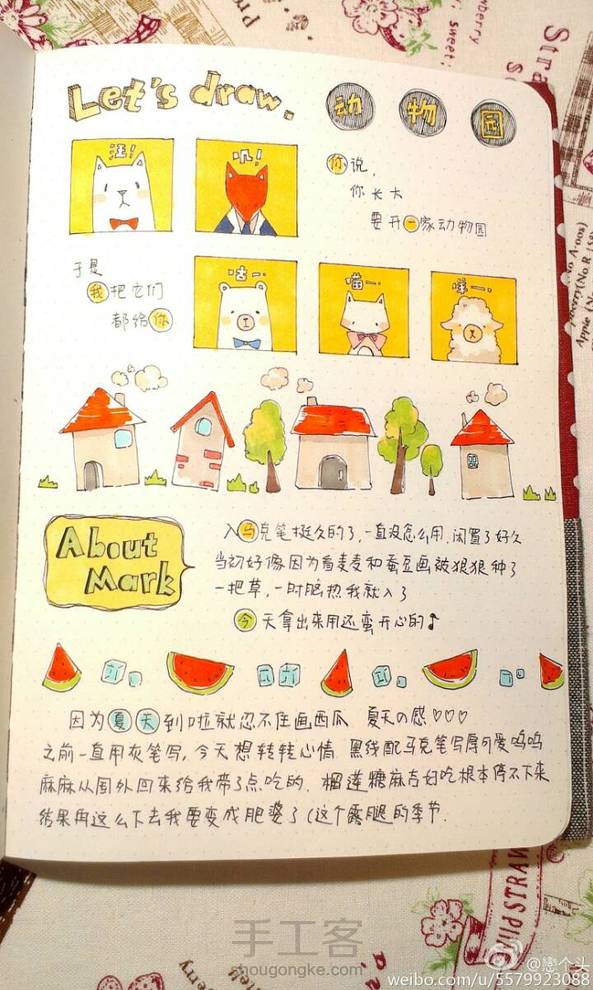 Let's draw.
动物园
汪!
叽!
你说,
你长大
要开一家动物园
于是
我把它们
都给你
咕—
喵—
咩—
About
Mark
入马克笔挺久的了,一直没怎么用,闲置了好久
当初好像因为看麦麦和蚕豆画被狠狠种了
一把草,一时脑热我就入了
今天拿出来用还蛮开心的♪
因为夏天到啦就忍不住画西瓜 夏天の感♡♡♡
之前一直用灰笔写,今天想转转心情 黑线配马克笔写厚可爱呜呜
麻麻从国外回来给我带了点吃的. 榴莲糖麻吉好吃根本停不下来
结果再这么下去我要变成肥婆了(这个露腿的季节.
手工客
shougongke.com
@戀个头
weibo.com/u/5579923088
Strawberry
sweet;